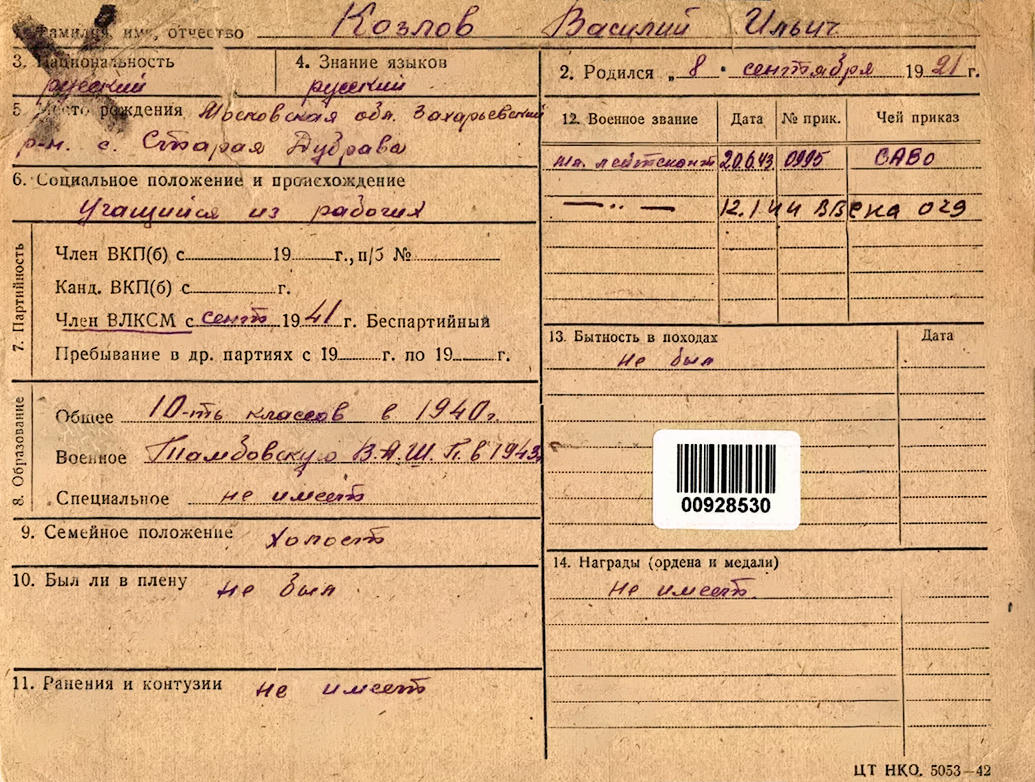 1. Фамилия, имя, отчество Козлов Василий Ильич
3. Национальность
русский
4. Знание языков
русский
5. Место рождения Московская обл. Захарьевский
р-н. с. Старая Дубрава
6. Социальное положение и происхождение
Учащийся из рабочих
7. Партийность
Член ВКП(б) с 19 г., п/б №
Канд. ВКП(б) с г.
Член ВЛКСМ с сент 1941 г. Беспартийный
Пребывание в др. партиях с 19 г. по 19 г.
8. Образование
Общее 10-ть классов в 1940г.
Военное Тамбовскую В.А.Ш.П. в 1943
Специальное не имеет
9. Семейное положение холост
10. Был ли в плену не был
11. Ранения и контузии не имеет
2. Родился „8" сентября 1921 г.
12. Военное звание Дата № прик. Чей приказ
мл. лейтенант 20.6.43 0995 САВО
— ·· — 12.1.44
13. Бытность в походах Дата
не был
00928530
14. Награды (ордена и медали)
не имеет
ЦТ НКО. 5053—42